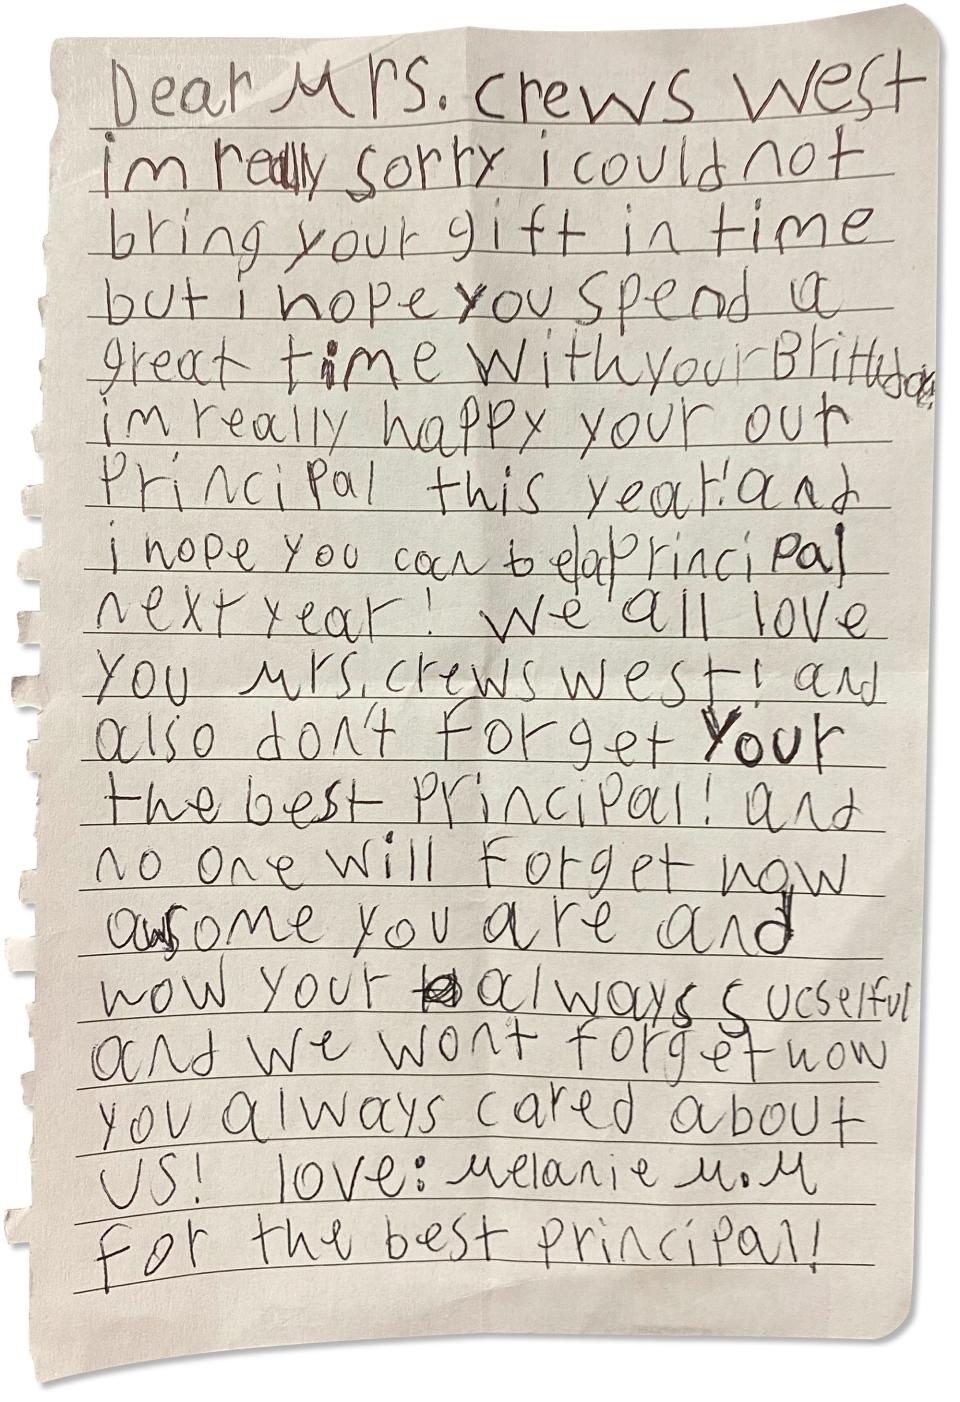 Dear Mrs. crews west
im really sorry i could not
bring your gift in time
but i hope you spend a
great time with your Brithday
im really happy your our
principal this year! and
i hope you can be a principal
next year! we all love
you Mrs. crews west! and
also don't forget your
the best principal! and
no one will forget how
awsome you are and
how your always sucselful
and we wont forget how
you always cared about
us! love: Melanie M.M
for the best principal!